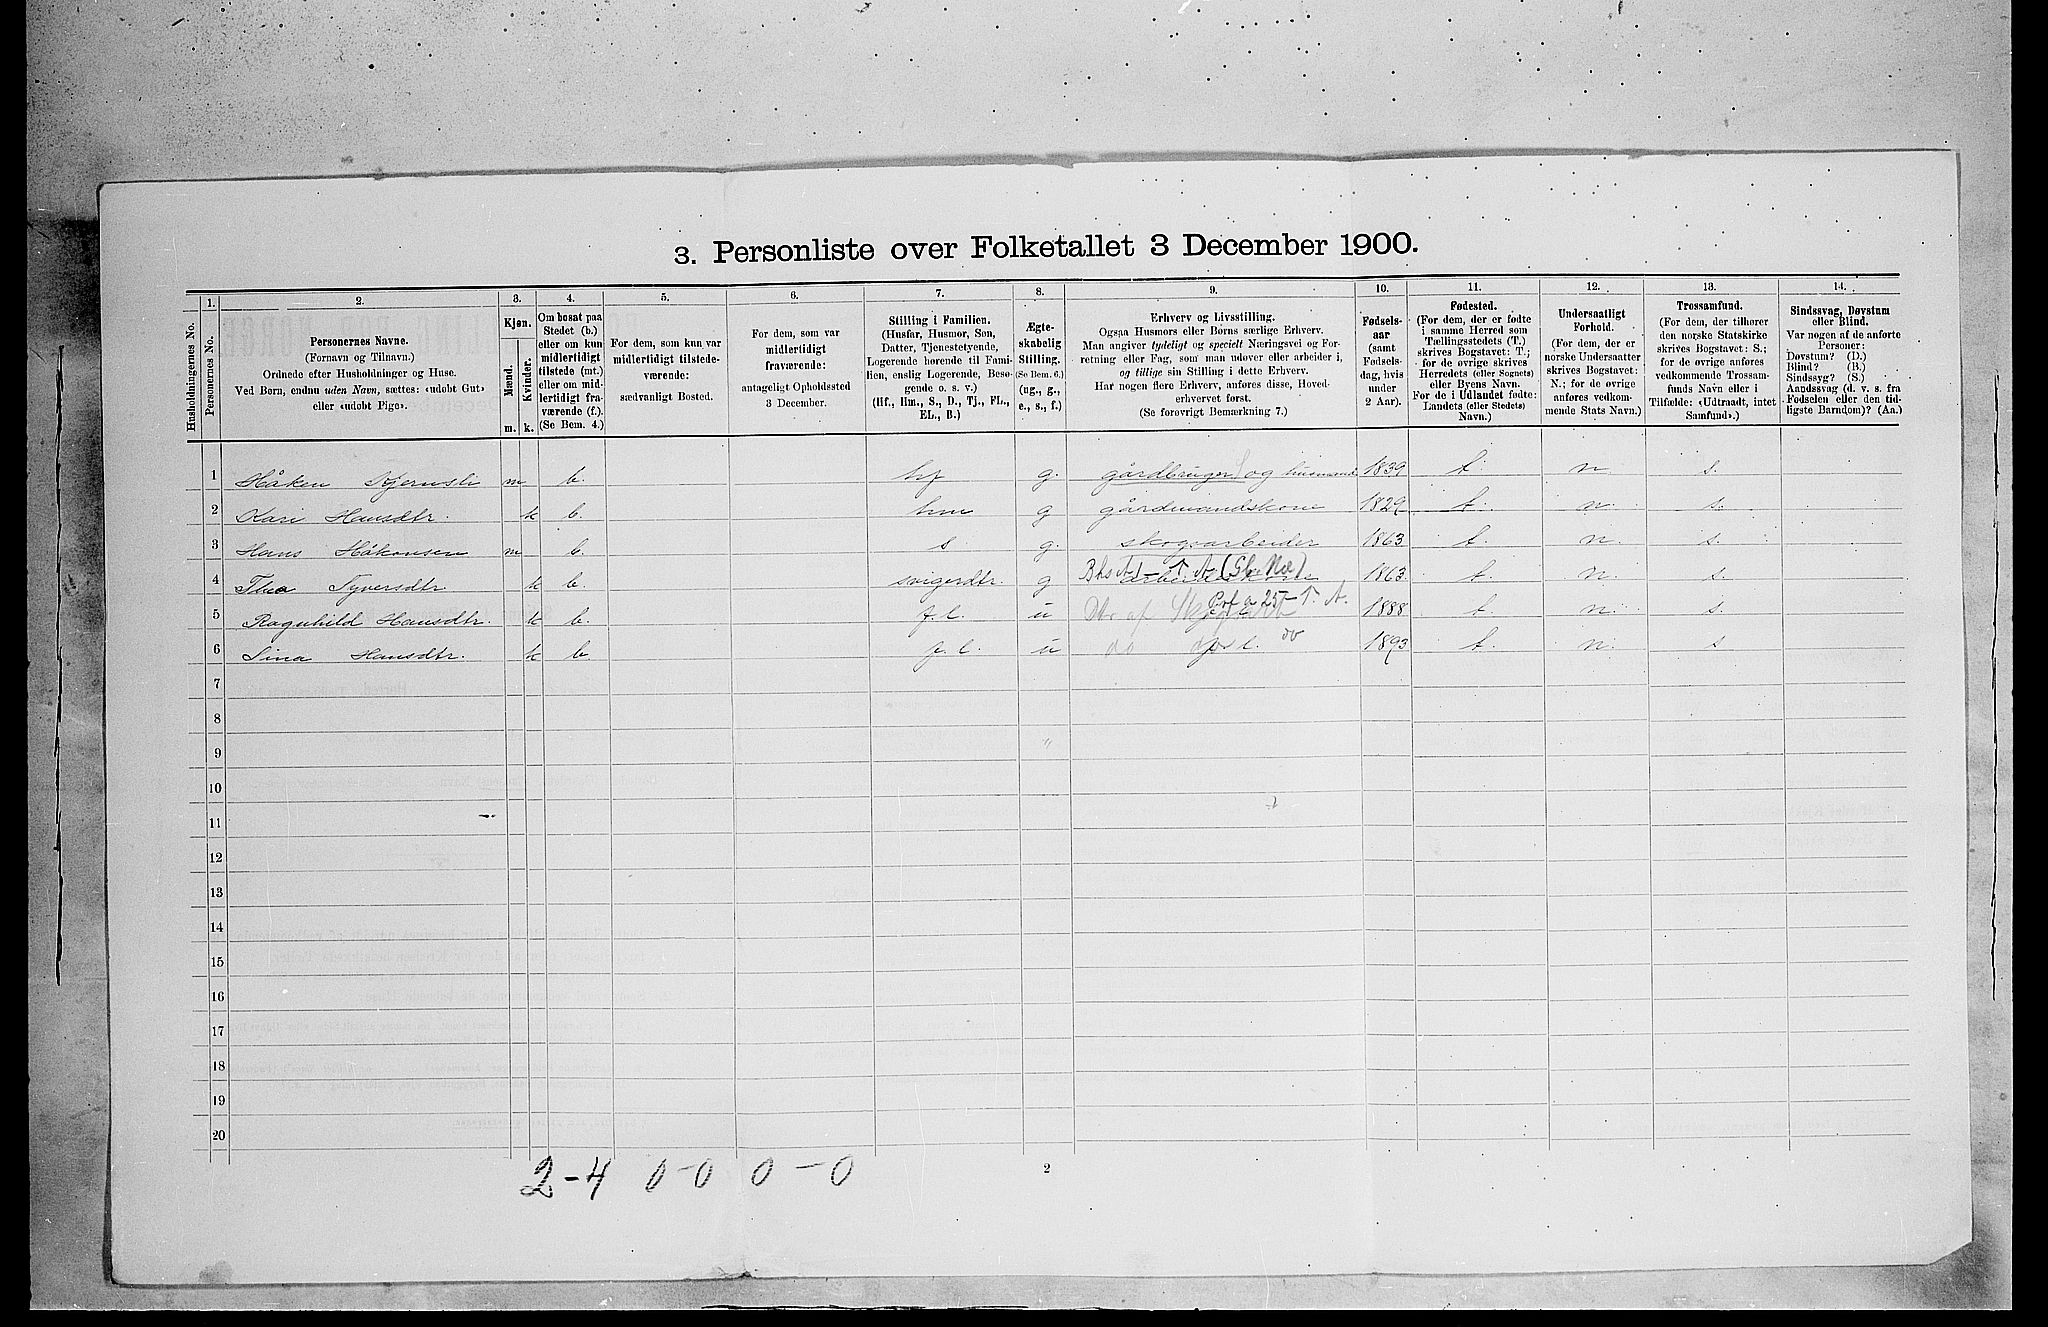 3. Personliste over Folketallet 3 December 1900.
Husholdningernes No.
1.
Personernes No.
2.
Personernes Navne.
(Fornavn og Tilnavn.)
Ordnede efter Husholdninger og Huse.
Ved Børn, endnu uden Navn, sættes: «udøbt Gut»
eller «udøbt Pige».
3.
Kjøn.
Mænd.
Kvinder.
m. k.
4.
Om bosat paa
Stedet (b.)
eller om kun
midlertidigt
tilstede (mt.)
eller om mid-
lertidigt fra-
værende (f.)
(Se Bem. 4.)
5.
For dem, som kun var
midlertidigt tilstede-
værende:
sædvanligt Bosted.
6.
For dem, som var
midlertidigt
fraværende:
antageligt Opholdssted
3 December.
7.
Stilling i Familien.
(Husfar, Husmor, Søn,
Datter, Tjenestetyende,
Logerende hørende til Fami-
lien, enslig Logerende, Besø-
gende o. s. v.)
(Hf., Hm., S., D., Tj., FL.,
EL., B.)
8.
Ægte-
skabelig
Stilling.
(Se Bem. 6.)
(ug., g.,
e., s., f.)
9.
Erhverv og Livsstilling.
Ogsaa Husmors eller Børns særlige Erhverv.
Man angiver tydeligt og specielt Næringsvei og For-
retning eller Fag, som man udøver eller arbeider i,
og tillige sin Stilling i dette Erhverv.
Har nogen flere Erhverv, anføres disse, Hoved-
erhvervet først.
(Se forøvrigt Bemærkning 7.)
10.
Fødsels-
aar
(samt
Fødsels-
dag, hvis
under
2 Aar).
11.
Fødested.
(For dem, der er fødte
i samme Herred som
Tællingsstedets (T.)
skrives Bogstavet: T.;
for de øvrige skrives
Herredets (eller Sognets)
eller Byens Navn.
For de i Udlandet fødte:
Landets (eller Stedets)
Navn.)
12.
Undersaatligt
Forhold.
(For dem, der er
norske Undersaatter
skrives Bogstavet:
N.; for de øvrige
anføres vedkom-
mende Stats Navn.)
13.
Trossamfund.
(For dem, der tilhører
den norske Statskirke
skrives Bogstavet: S.;
for de øvrige anføres
vedkommende Trossam-
funds Navn eller i
Tilfælde: «Udtraadt, intet
Samfund».)
14.
Sindssvag, Døvstum
eller Blind.
Var nogen af de anførte
Personer:
Døvstum? (D.)
Blind? (B.)
Sindssyg? (S.)
Aandssvag (d. v. s. fra
Fødselen eller den tid-
ligste Barndom)? (Aa.)
1 Håken Kjernsli m b. hf g. gårdbruger og husmand 1839 t. n. s.
2 Kari Hansdtr. k b. hm g gårdmandskone 1829 t. n. s.
3 Hans Håkonsen m b. s g. skogsarbeider 1863 t. n. s.
4 Thea Syversdtr k b. svigerdtr. g 1863 t. n. s.
5 Ragnhild Hansdtr. k b. f.l. u Dtr af 1888 t. n. s.
6 Lina Hansdtr. k b. f.l. u do do 1893 t. n. s
7
8
9
10
11
12
13
14
15
16
17
18
19
20
2-4 0-0 0-0
2